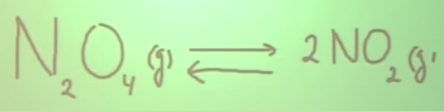 N₂O₄ (g) ⇌ 2 NO₂ (g)